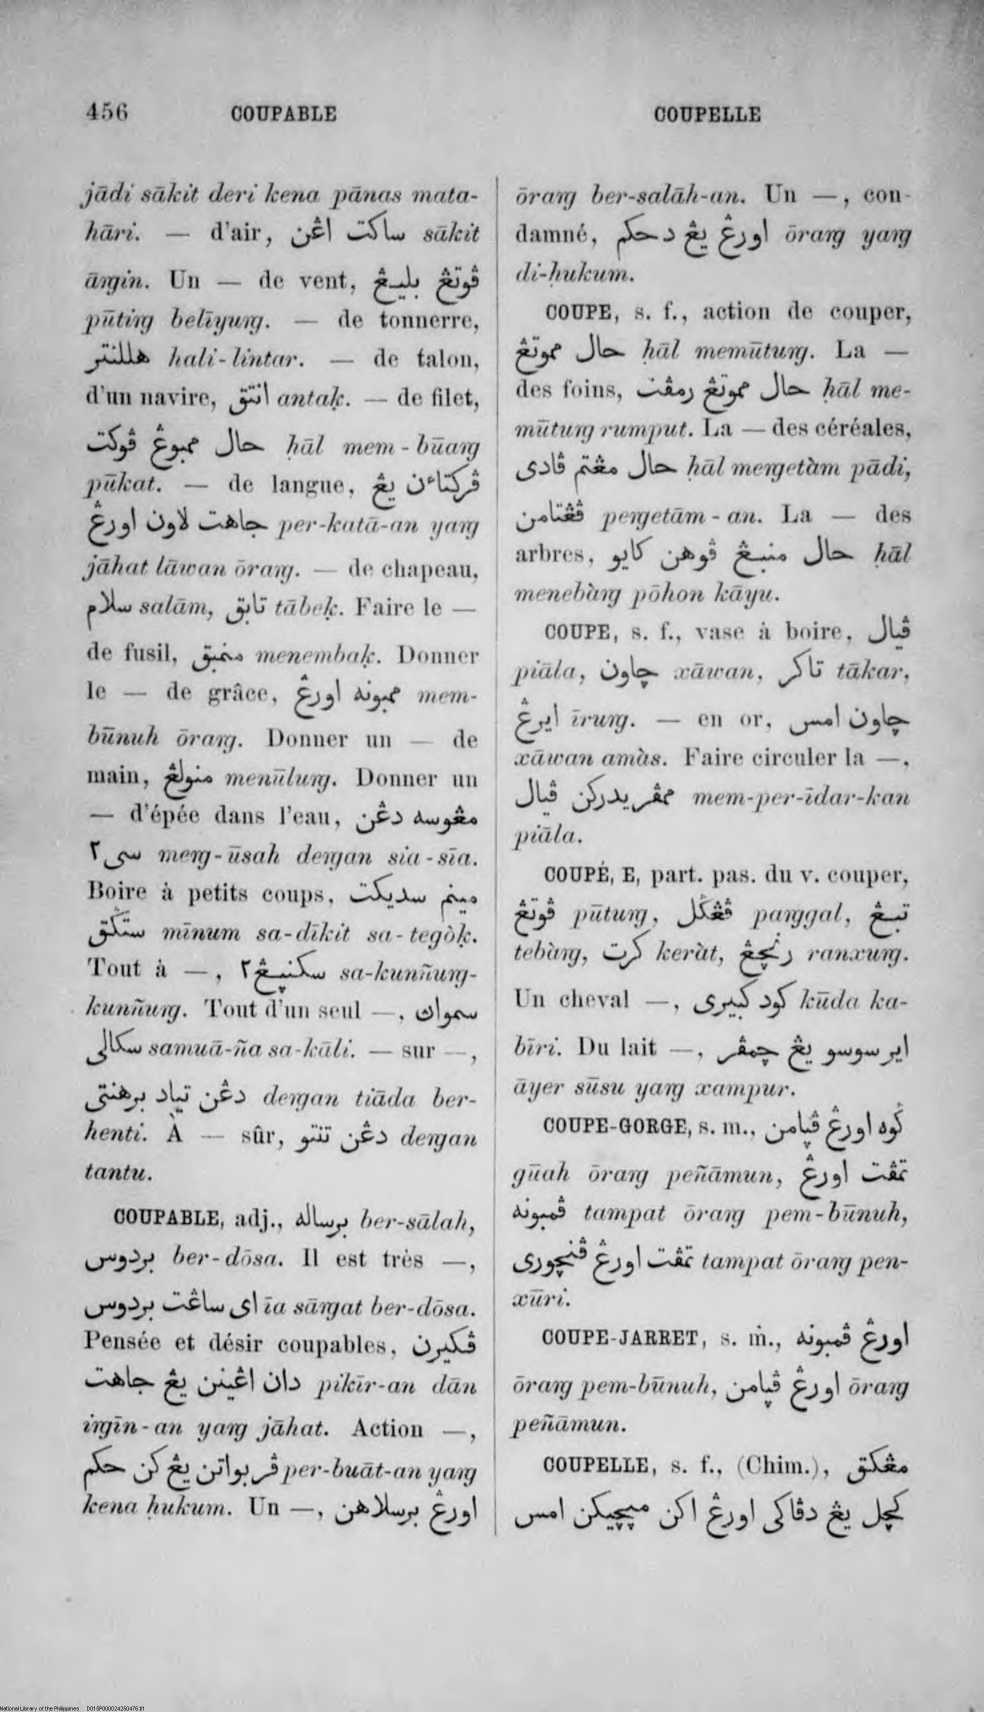 456 COUPABLE COUPELLE
jādi sākit deri kena pānas mata-
hāri. — d'air, ساكت اڠن sākit
āngin. Un — de vent, ڤوتڠ بليڠ
pūting belīyung. — de tonnerre,
هللنتر hali-lintar. — de talon,
d'un navire, انتق antaḳ. — de filet,
حال ممبوڠ ڤوكت ḥāl mem-būang
pūkat. — de langue, ڤركتاءن يڠ
جاهت لاون اورڠ per-katā-an yang
jāhat lāwan ōrang. — de chapeau,
سلام salām, تابق tābeḳ. Faire le —
de fusil, منمبق menembaḳ. Donner
le — de grâce, ممبونه اورڠ mem-
būnuh ōrang. Donner un — de
main, منولڠ menūlung. Donner un
— d'épée dans l'eau, مڠوسه دڠن
سى٢ meng-ūsah dengan sia-sīa.
Boire à petits coups, مينم سديكت
ستڬق mīnum sa-dīkit sa-tegòḳ.
Tout à —, سكنڽڠ٢ sa-kunñung-
kunñung. Tout d'un seul —, سموان
سكالى samuā-ña sa-kāli. — sur —,
دڠن تياد برهنتى dengan tiāda ber-
henti. À — sûr, دڠن تنتو dengan
tantu.
COUPABLE, adj., برساله ber-sālah,
بردوس ber-dōsa. Il est très —,
اى ساڠت بردوس īa sāngat ber-dōsa.
Pensée et désir coupables, ڤكيرن
دان اڠينن يڠ جاهت pikīr-an dān
ingīn-an yang jāhat. Action —,
ڤربواتن يڠ كن حكم per-buāt-an yang
kena ḥukum. Un —, اورڠ برسلاهن
ōrang ber-salāh-an. Un —, con-
damné, اورڠ يڠ دحكم ōrang yang
di-ḥukum.
COUPE, s. f., action de couper,
حال مموتڠ ḥāl memūtung. La —
des foins, حال مموتڠ رمڤت ḥāl me-
mūtung rumput. La — des céréales,
حال مڠتم ڤادى ḥāl mengetàm pādi,
ڤڠتامن pengetām-an. La — des
arbres, حال منبڠ ڤوهن كايو ḥāl
menebàng pōhon kāyu.
COUPE, s. f., vase à boire, ڤيال
piāla, چاون xāwan, تاكر tākar,
ايرڠ īrung. — en or, چاون امس
xāwan amàs. Faire circuler la —,
ممڤريدركن ڤيال mem-per-īdar-kan
piāla.
COUPÉ, E, part. pas. du v. couper,
ڤوتڠ pūtung, ڤڠڬل panggal, تبڠ
tebàng, كرت keràt, رنچڠ ranxung.
Un cheval —, كود كبيرى kūda ka-
bīri. Du lait —, اير سوسو يڠ چمڤر
āyer sūsu yang xampur.
COUPE-GORGE, s. m., ڬوه اورڠ ڤڽامن
gūah ōrang peñāmun, تمڤت اورڠ
ڤمبونه tampat ōrang pem-būnuh,
تمڤت اورڠ ڤنچورى tampat ōrang pen-
xūri.
COUPE-JARRET, s. m., اورڠ ڤمبونه
ōrang pem-būnuh, اورڠ ڤڽامن ōrang
peñāmun.
COUPELLE, s. f., (Chim.), مڠكق
كچل يڠ دڤاكى اورڠ اكن مپچيكن امس
National Library of the Philippines